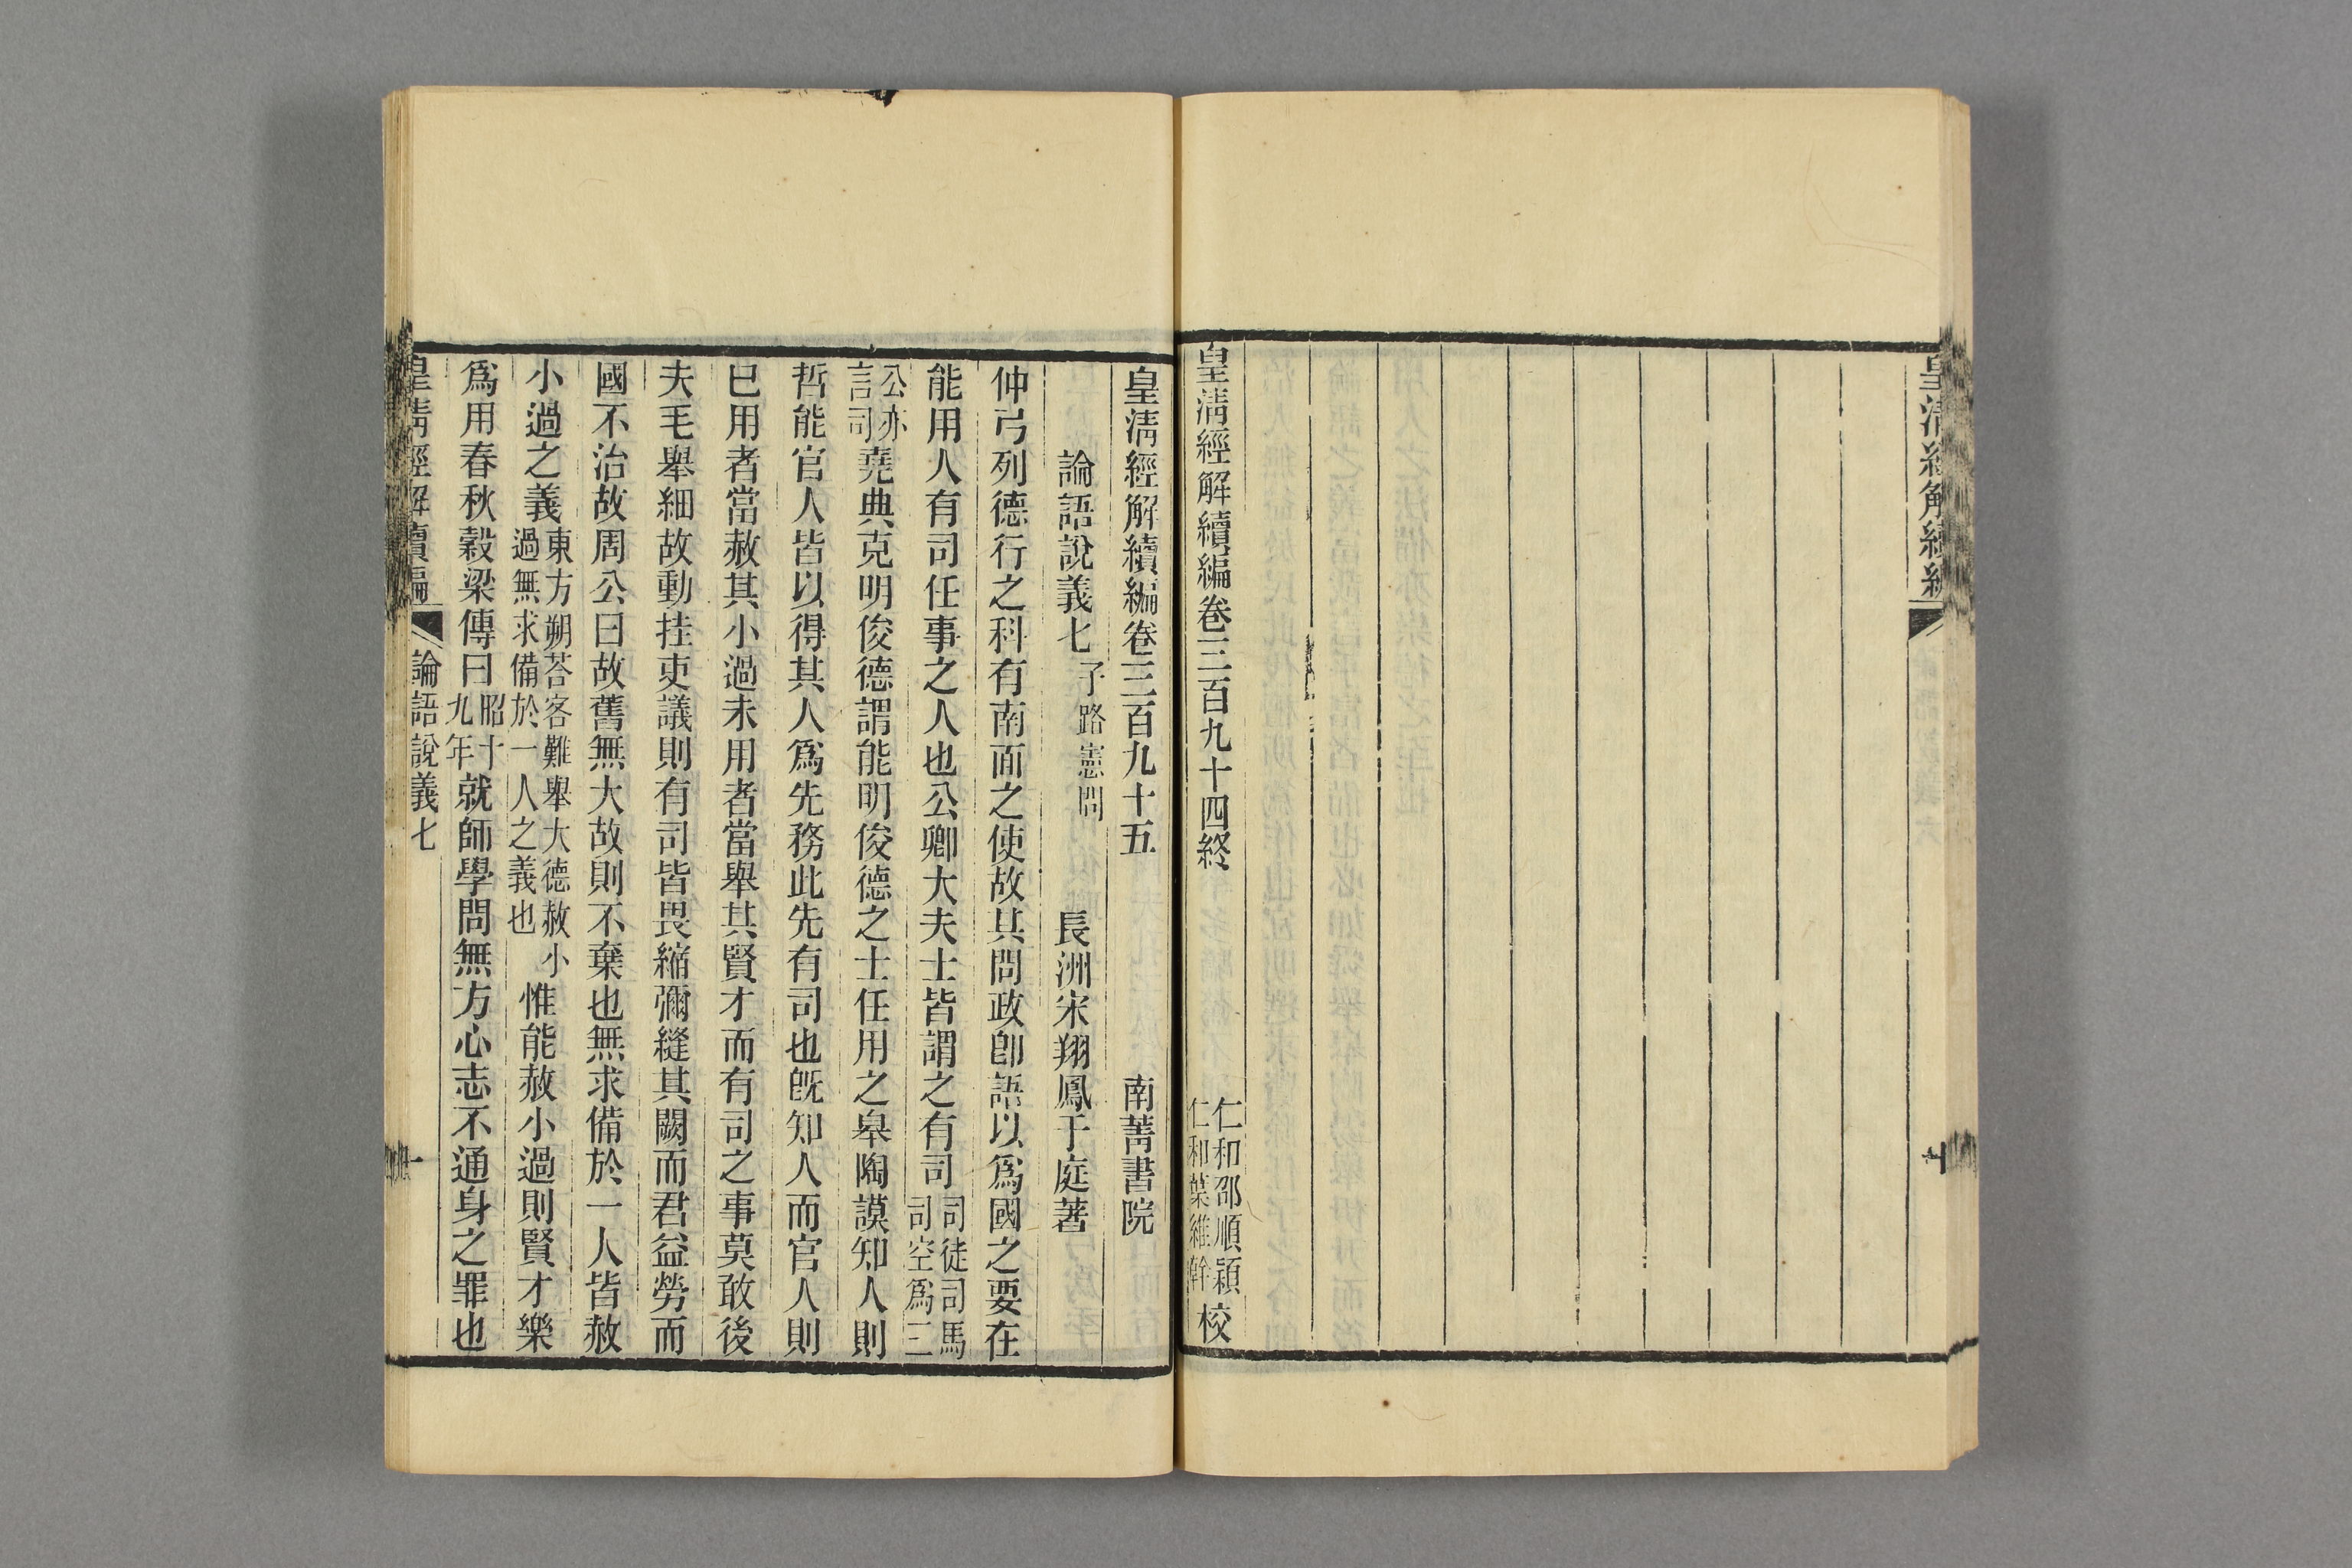 皇清經解續編
皇清經解續編卷三百九十四終
仁和邵順頴
仁和葉維幹
校
皇清經解續編卷三百九十五
南菁書院
論語說義七
子路憲問
長洲宋翔鳳于庭著
仲弓列德行之科有南面之使故其問政卽語以爲國之要在
能用人有司任事之人也公卿大夫士皆謂之有司司徒司馬司空爲三
公亦言司堯典克明俊德謂能明俊德之士任用之皋陶謨知人則
哲能官人皆以得其人爲先務此先有司也旣知人而官人則
已用者當赦其小過未用者當舉其賢才而有司之事莫敢後
夫毛舉細故動挂吏議則有司皆畏縮彌縫其闕而君益勞而
國不治故周公曰故舊無大故則不棄也無求備於一人皆赦
小過之義東方朔荅客難舉大德赦小過無求備於一人之義也惟能赦小過則賢才樂
爲用春秋穀梁傳曰昭十九年就師學問無方心志不通身之罪也
皇清經解續編
論語說義七
一